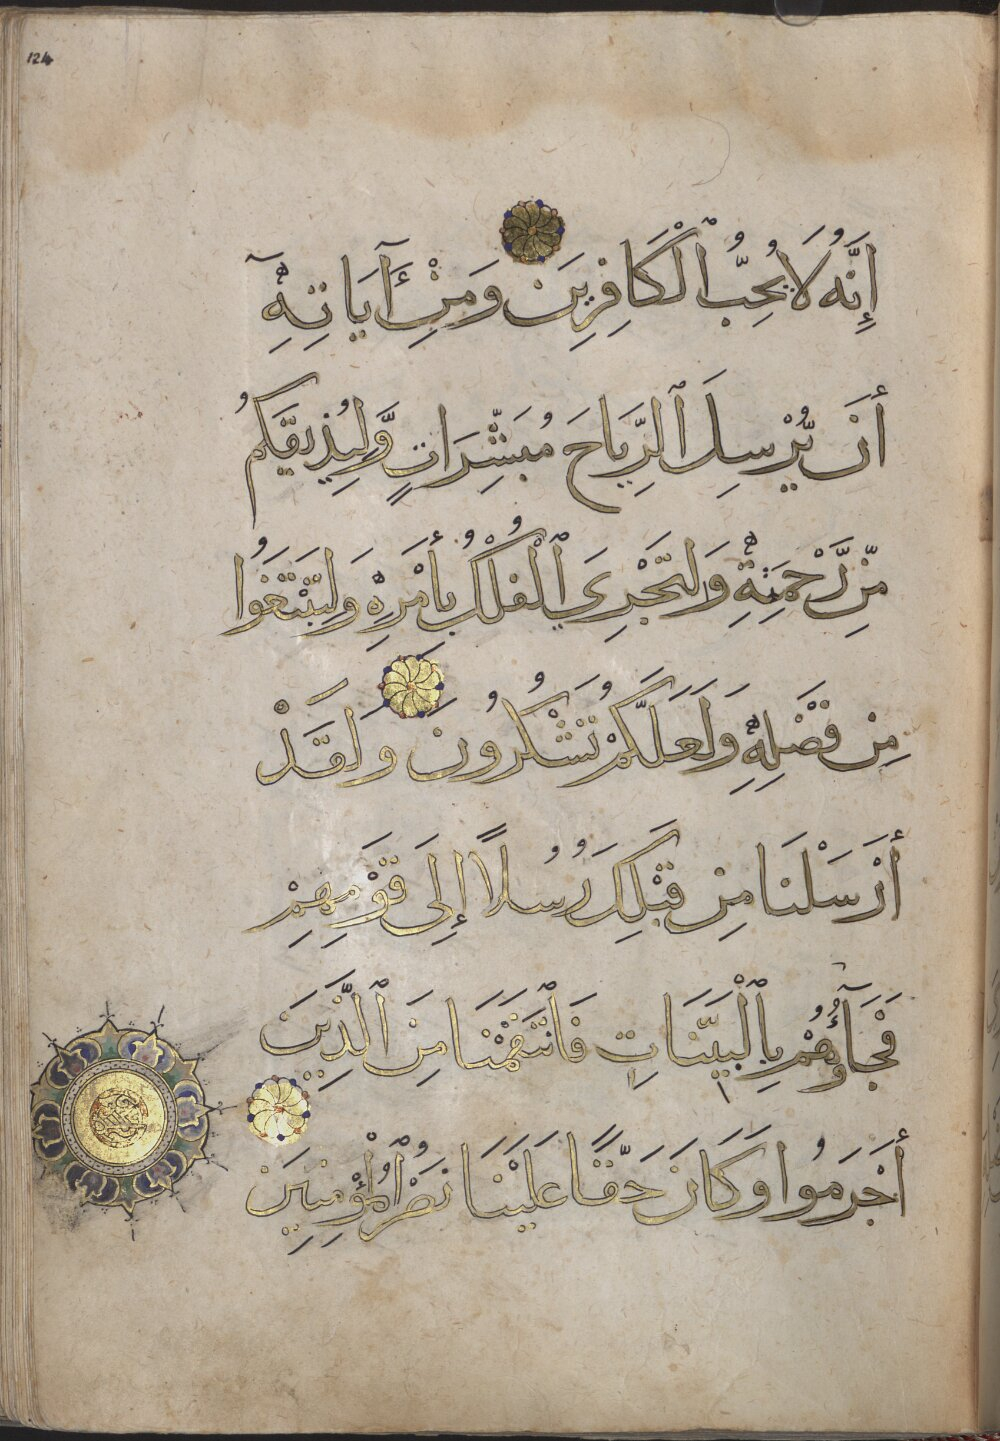 124
إِنَّهُ لَا يُحِبُّ ٱلْكَافِرِينَ وَمِنْ ءَآيَاتِهِۦٓ
أَن يُرْسِلَ ٱلرِّيَاحَ مُبَشِّرَاتٍ وَّلِيُذِيقَكُم
مِّن رَّحْمَتِهِۦ وَلِتَجْرِيَ ٱلْفُلْكُ بِأَمْرِهِۦ وَلِتَبْتَغُوا
مِن فَضْلِهِۦ وَلَعَلَّكُمْ تَشْكُرُونَ وَلَقَدْ
أَرْسَلْنَا مِن قَبْلِكَ رُسُلًا إِلَى قَوْمِهِمْ
فَجَآؤُهُمْ بِٱلْبَيِّنَاتِ فَٱنْتَقَمْنَا مِنَ ٱلَّذِينَ
أَجْرَمُوا وَكَانَ حَقًّا عَلَيْنَا نَصْرُ ٱلْمُؤْمِنِينَ